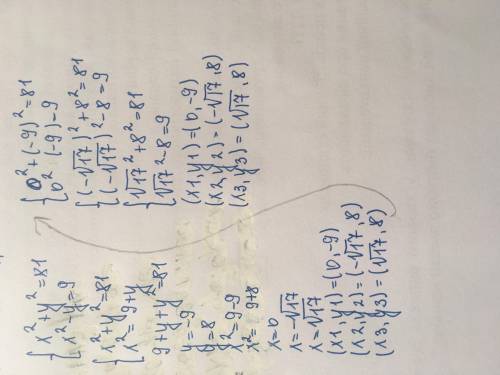 { x²+y²=81
x²-y=9
{ x²+y²=81
x²=9+y
9+y+y²=81
y=-9
y=8
x²=9-9
x²=9+8
x=0
x=-√17
x=√17
(x1,y1)=(0,-9)
(x2,y2)=(-√17,8)
(x3,y3)=(√17,8)
{ 0²+(-9)²=81
0² (-9)-9
{ (-√17)²+8²=81
(-√17)²-8=9
{ √17²+8²=81
√17²-8=9
(x1,y1)=(0,-9)
(x2,y2)=(-√17,8)
(x3,y3)=(√17,8)